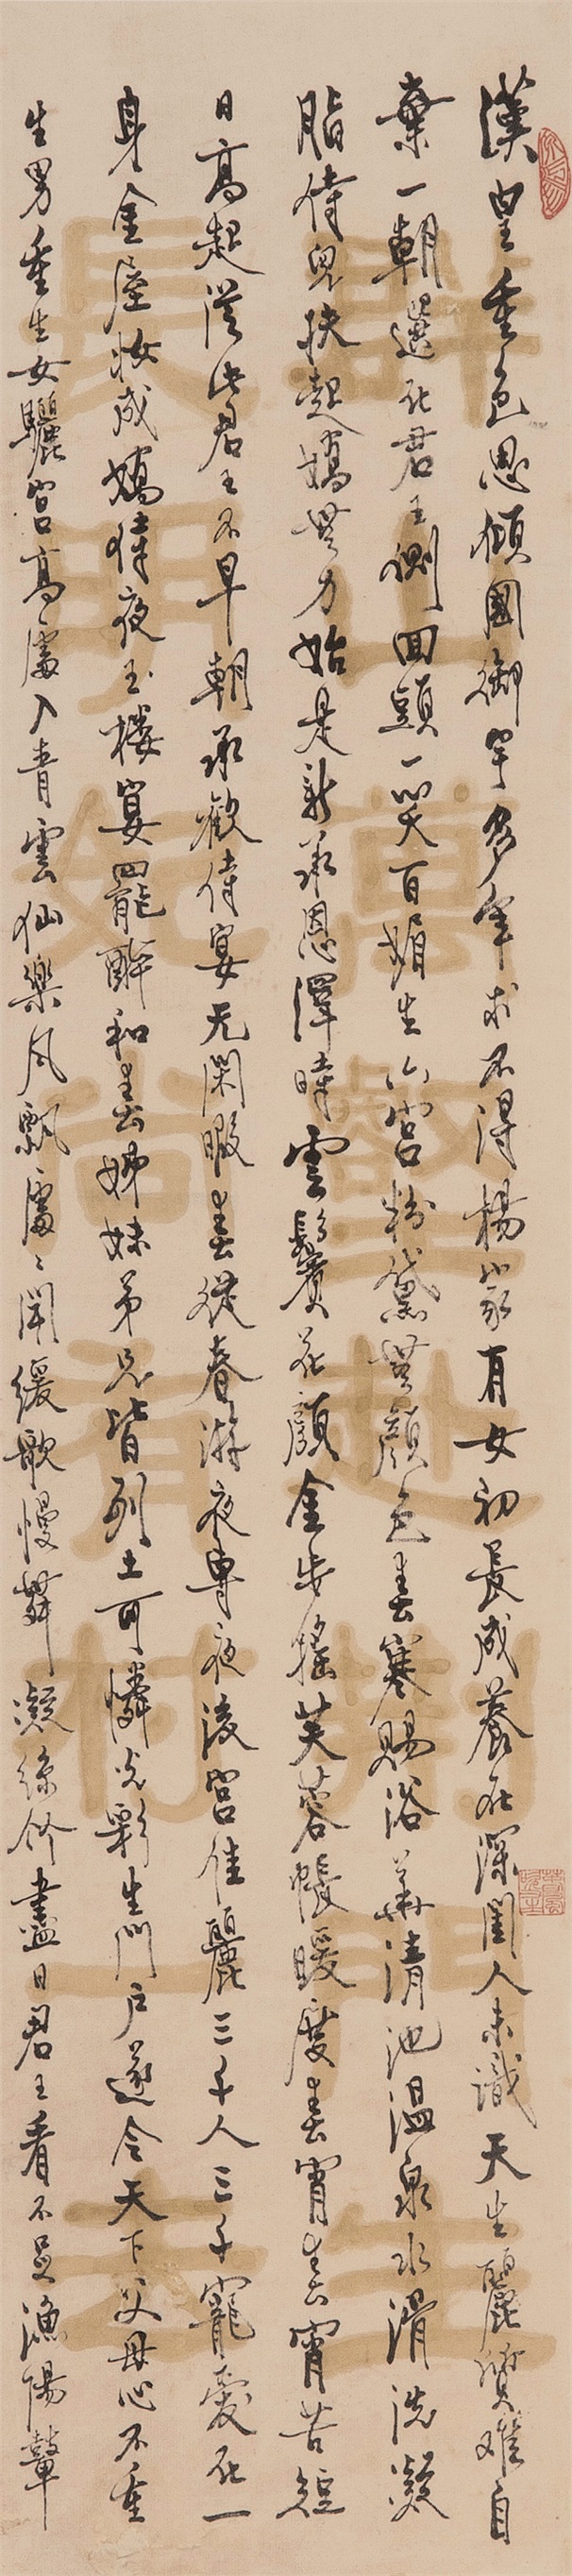 漢皇重色思傾國御宇多年求不得楊家有女初長成養在深閨人未識天生麗質难自
棄一朝選在君王側回頭一笑百媚生六宮粉黛無顏色春寒賜浴華清池温泉水滑洗凝
脂侍兒扶起嬌無力始是新承恩澤時雲鬢花顏金步搖芙蓉帳暖度春宵春宵苦短
日高起從此君王不早朝承歡侍宴无閑暇春從春游夜專夜後宮佳麗三千人三千寵愛在一
身金屋妝成嬌侍夜玉樓宴罷醉和春姊妹弟兄皆列土可憐光彩生門户遂令天下父母心不重
生男重生女驪宮高處入青雲仙樂风飘處〻聞緩歌慢舞凝絲竹盡日君王看不足漁陽鼙